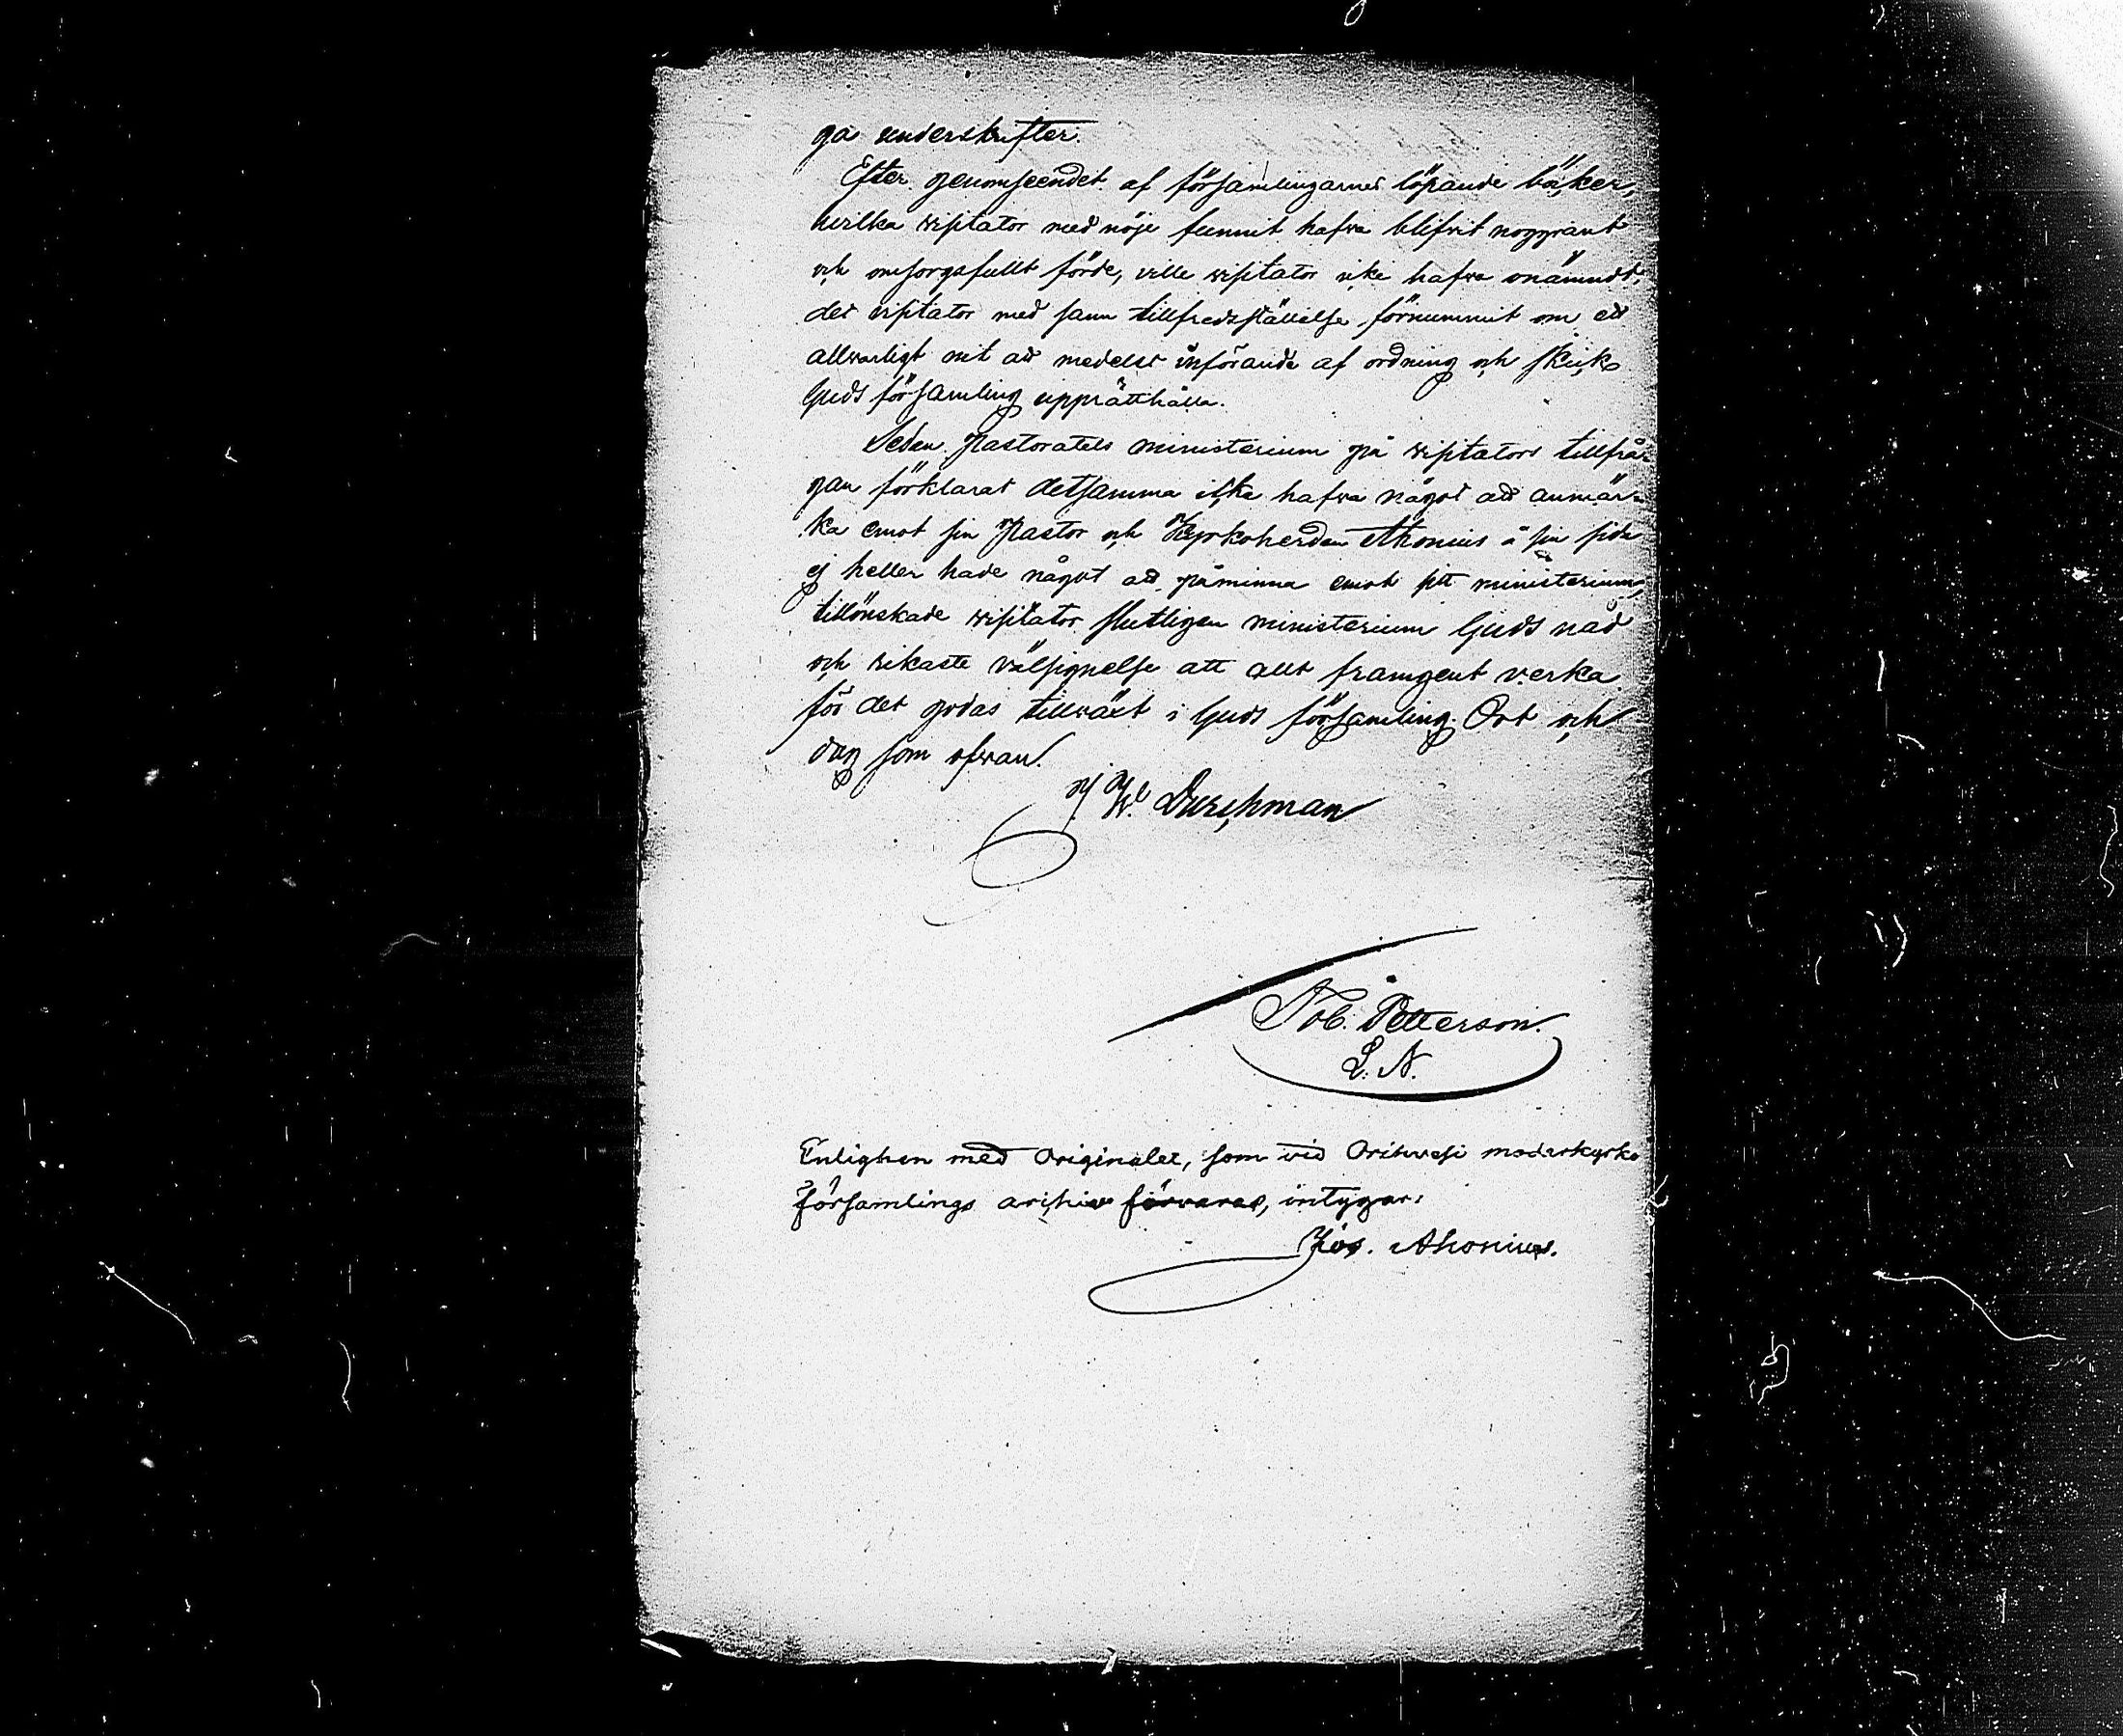 ga underskrifter.
Efter genomseendet af församlingarnes löpande böcker,
hvilka visitator med nöje funnit hafva blifvit noggrant
och omsorgsfullt förde, ville visitator icke hafva onämndt,
det visitator med sann tillfredsställelse förnummit om ett
allvarligt nit att medelst införande af ordning och skick
Guds församling upprätthålla.
Sedan Pastoratets ministerium på visitators tillfrå-
gan förklarat detsamma icke hafva något att anmär-
ka emot sin Pastor och Kyrkoherden Ahonius å sin sida
ej heller hade något att påminna emot sitt ministerium,
tillönskade visitator slutligen ministerium Guds nåd
och rikaste välsignelse att allt framgent verka
för det godas tillväxt i Guds församling. Ort och
dag som ofvan.
J. W. Durchman
Tob. Petterson.
L. N.
Enligheten med Originalet, som vid Orihvesi moderkyrko
församlings archiv förvaras, intygar:
Jos. Ahonius.